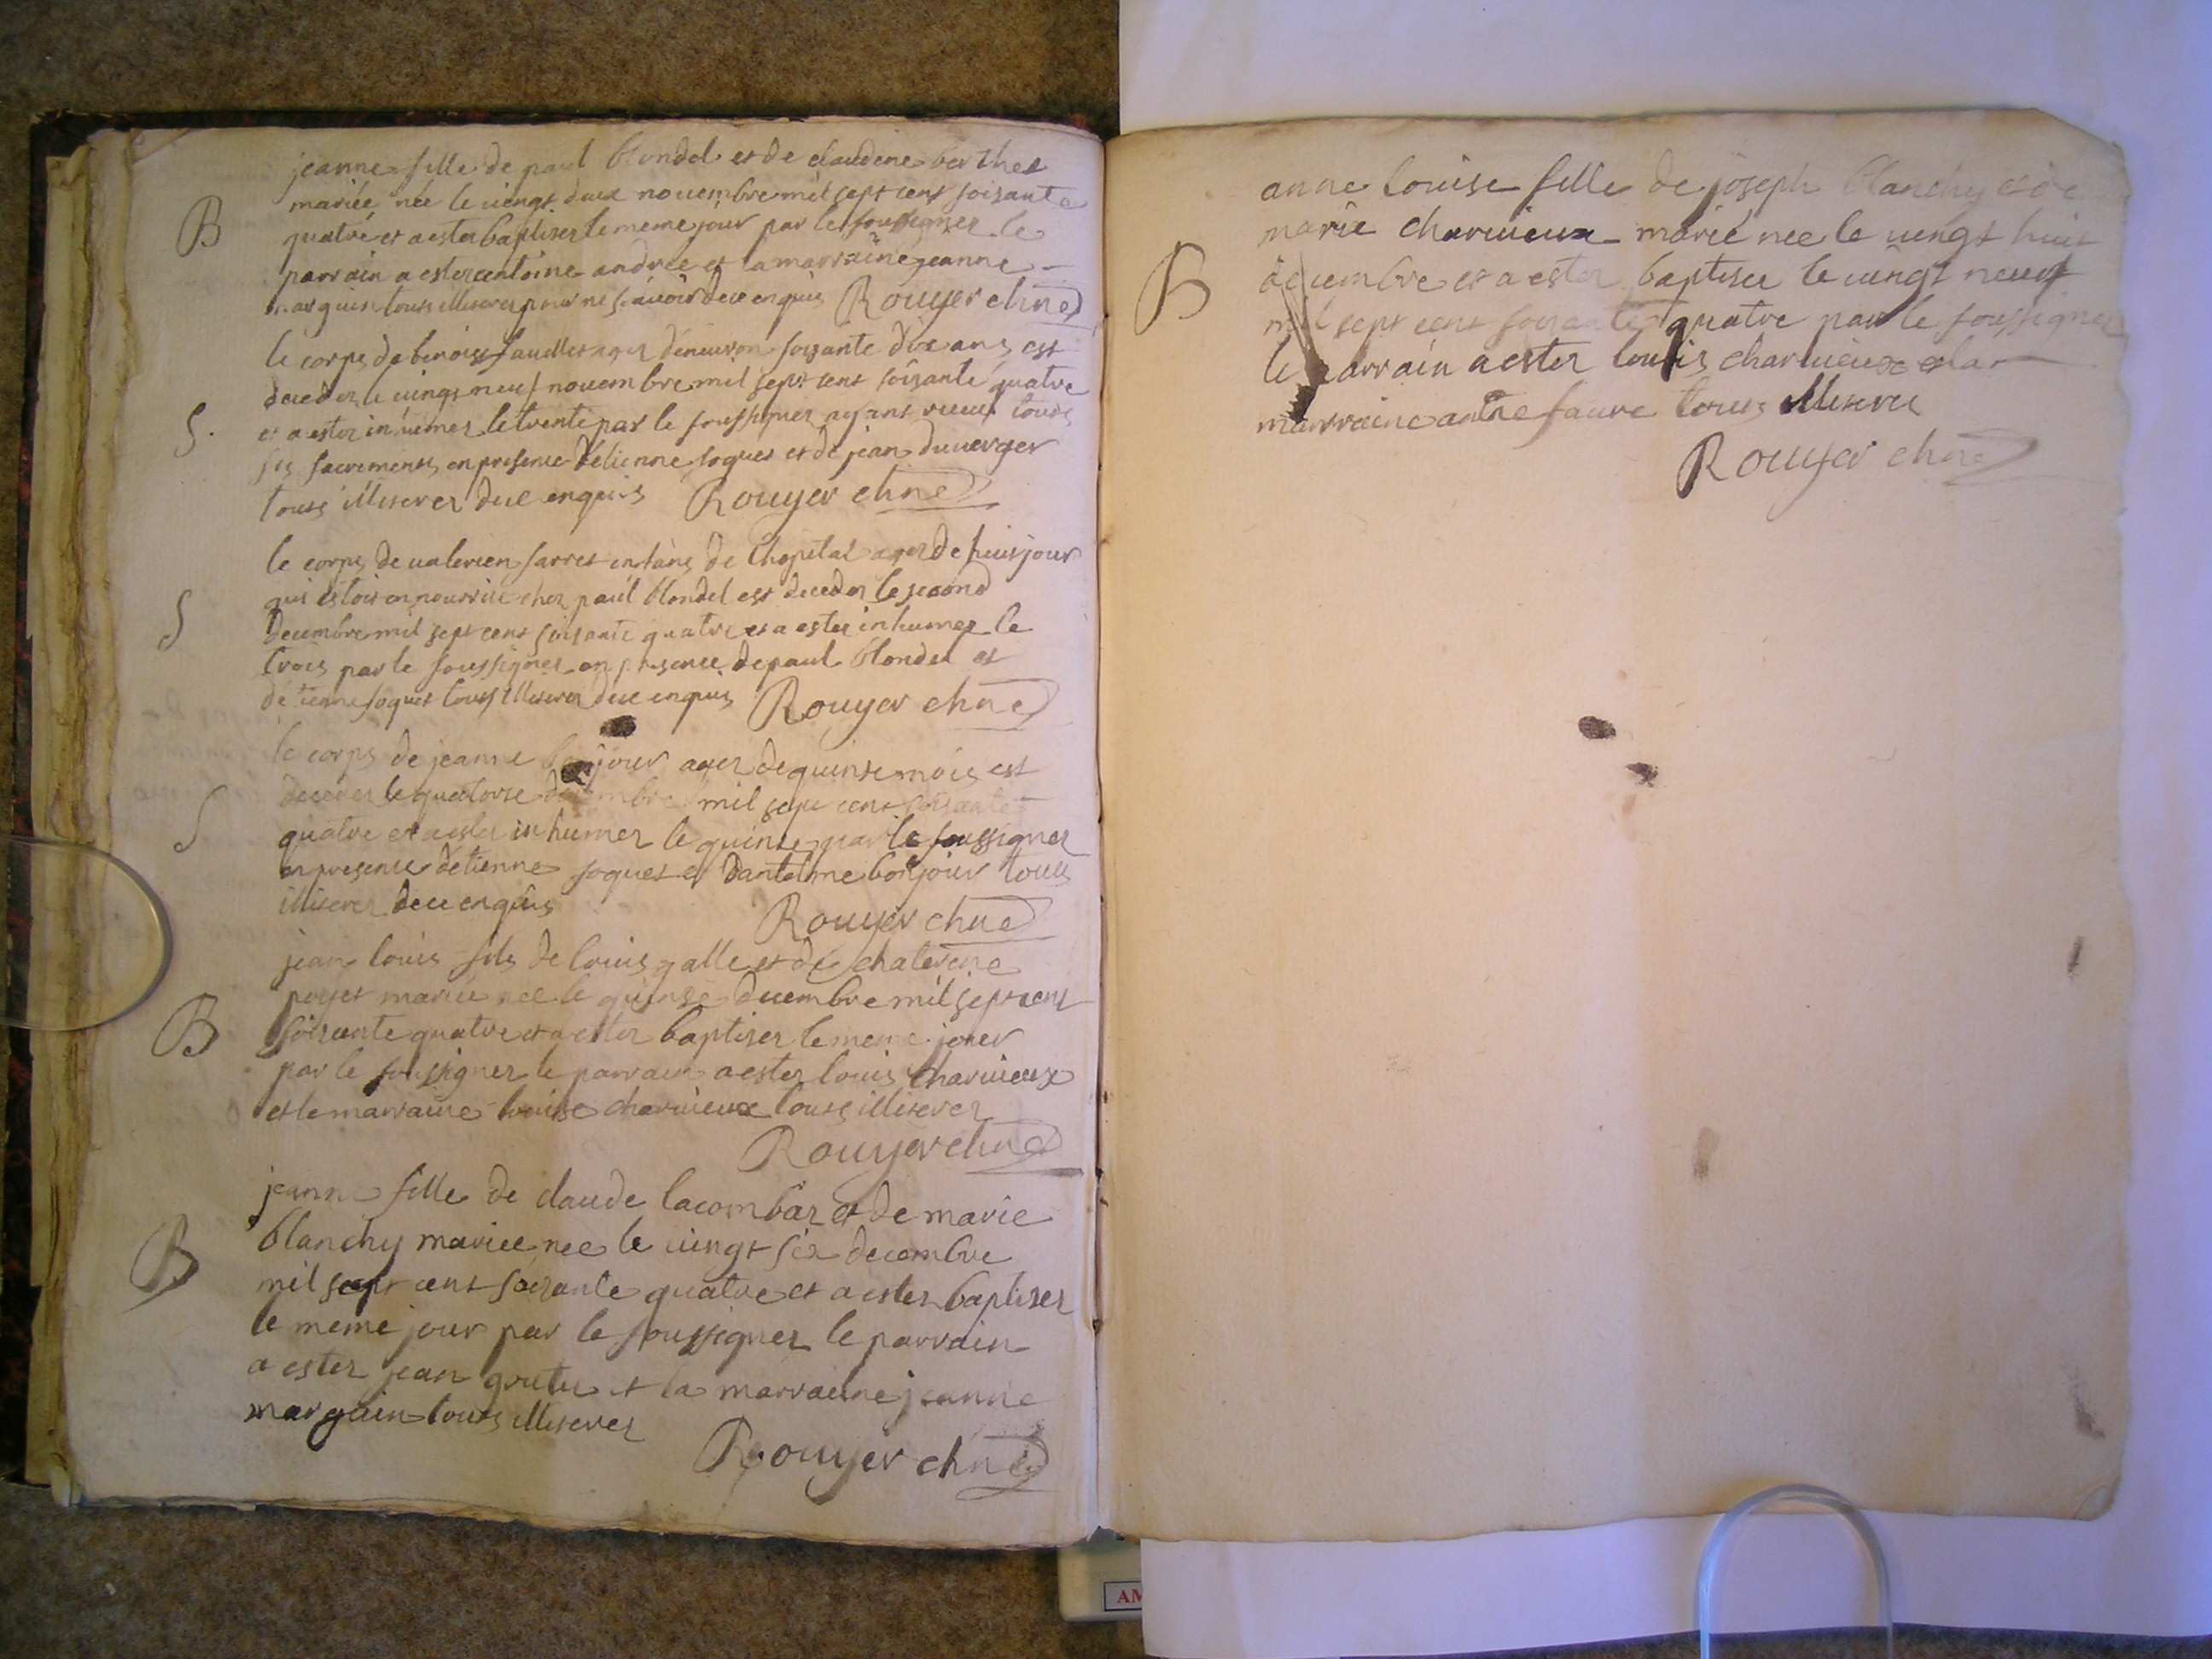 jeanne fille de paul blondel et de claudine berthet
mariée née le vingt deux novembre mil sept cent soixante
B
quatre et a ester baptiser le meme jour par le soussigner le
parrain a ester antoine andrée et la marraine jeanne
marguin tous illiserer pour ne scavoir de ce enquis Rouyer chne
le corps de benoist fauellet ager denviron soixante dix ans est
deceder le vingt neuf novembre mil sept cent soixante quatre
S.
et a ester inhumer le trente par le soussigner ayant receu tous
ses sacrements en presence detienne soques et de jean duverger
tous illiserer de ce enquis Rouyer chne
le corps de valerien sarret enfans de l'hopital ager de huit jour
qui estoit en nourrice chez paul blondel est deceder le second
S
decembre mil sept cent soixante quatre et a ester inhumer le
trois par le soussigner en presence de paul blondel et
detienne soques tous illiserer de ce enquis Rouyer chne
le corps de jeanne bonjour ager de quinze mois est
deceder le quatorse decembre mil sept cent soixante
S
quatre et a ester inhumer le quinze par le soussigner
en presence detienne soques et dantelme bonjour tous
illiserer de ce enquis
Rouyer chne
jean louis fils de louis galle et de chaterine
poyet mariée née le quinse decembre mil sept cent
B
soixante quatre et a ester baptiser le meme jour
par le soussigner le parrain a ester louis charvieux
et le marraine louise charvieux tous illiserer
Rouyer chne
jeanne fille de claude lacombar et de marie
blanchy mariee nee le vingt six decembre
B
mil sept cent soixante quatre et a ester baptiser
le meme jour par le soussigner le parrain
a ester jean et la marraine jeanne
marguin tous illiserer
Rouyer chne
anne louise fille de joseph blanchy et de
marie charvieux marié née le vingt huit
B
decembre et a ester baptisee le vingt neuf
mil sept cent soixante quatre par le soussigner
le parrain a ester louis charvieux et la
marraine antne faure tous illiserer
Rouyer chne
AM